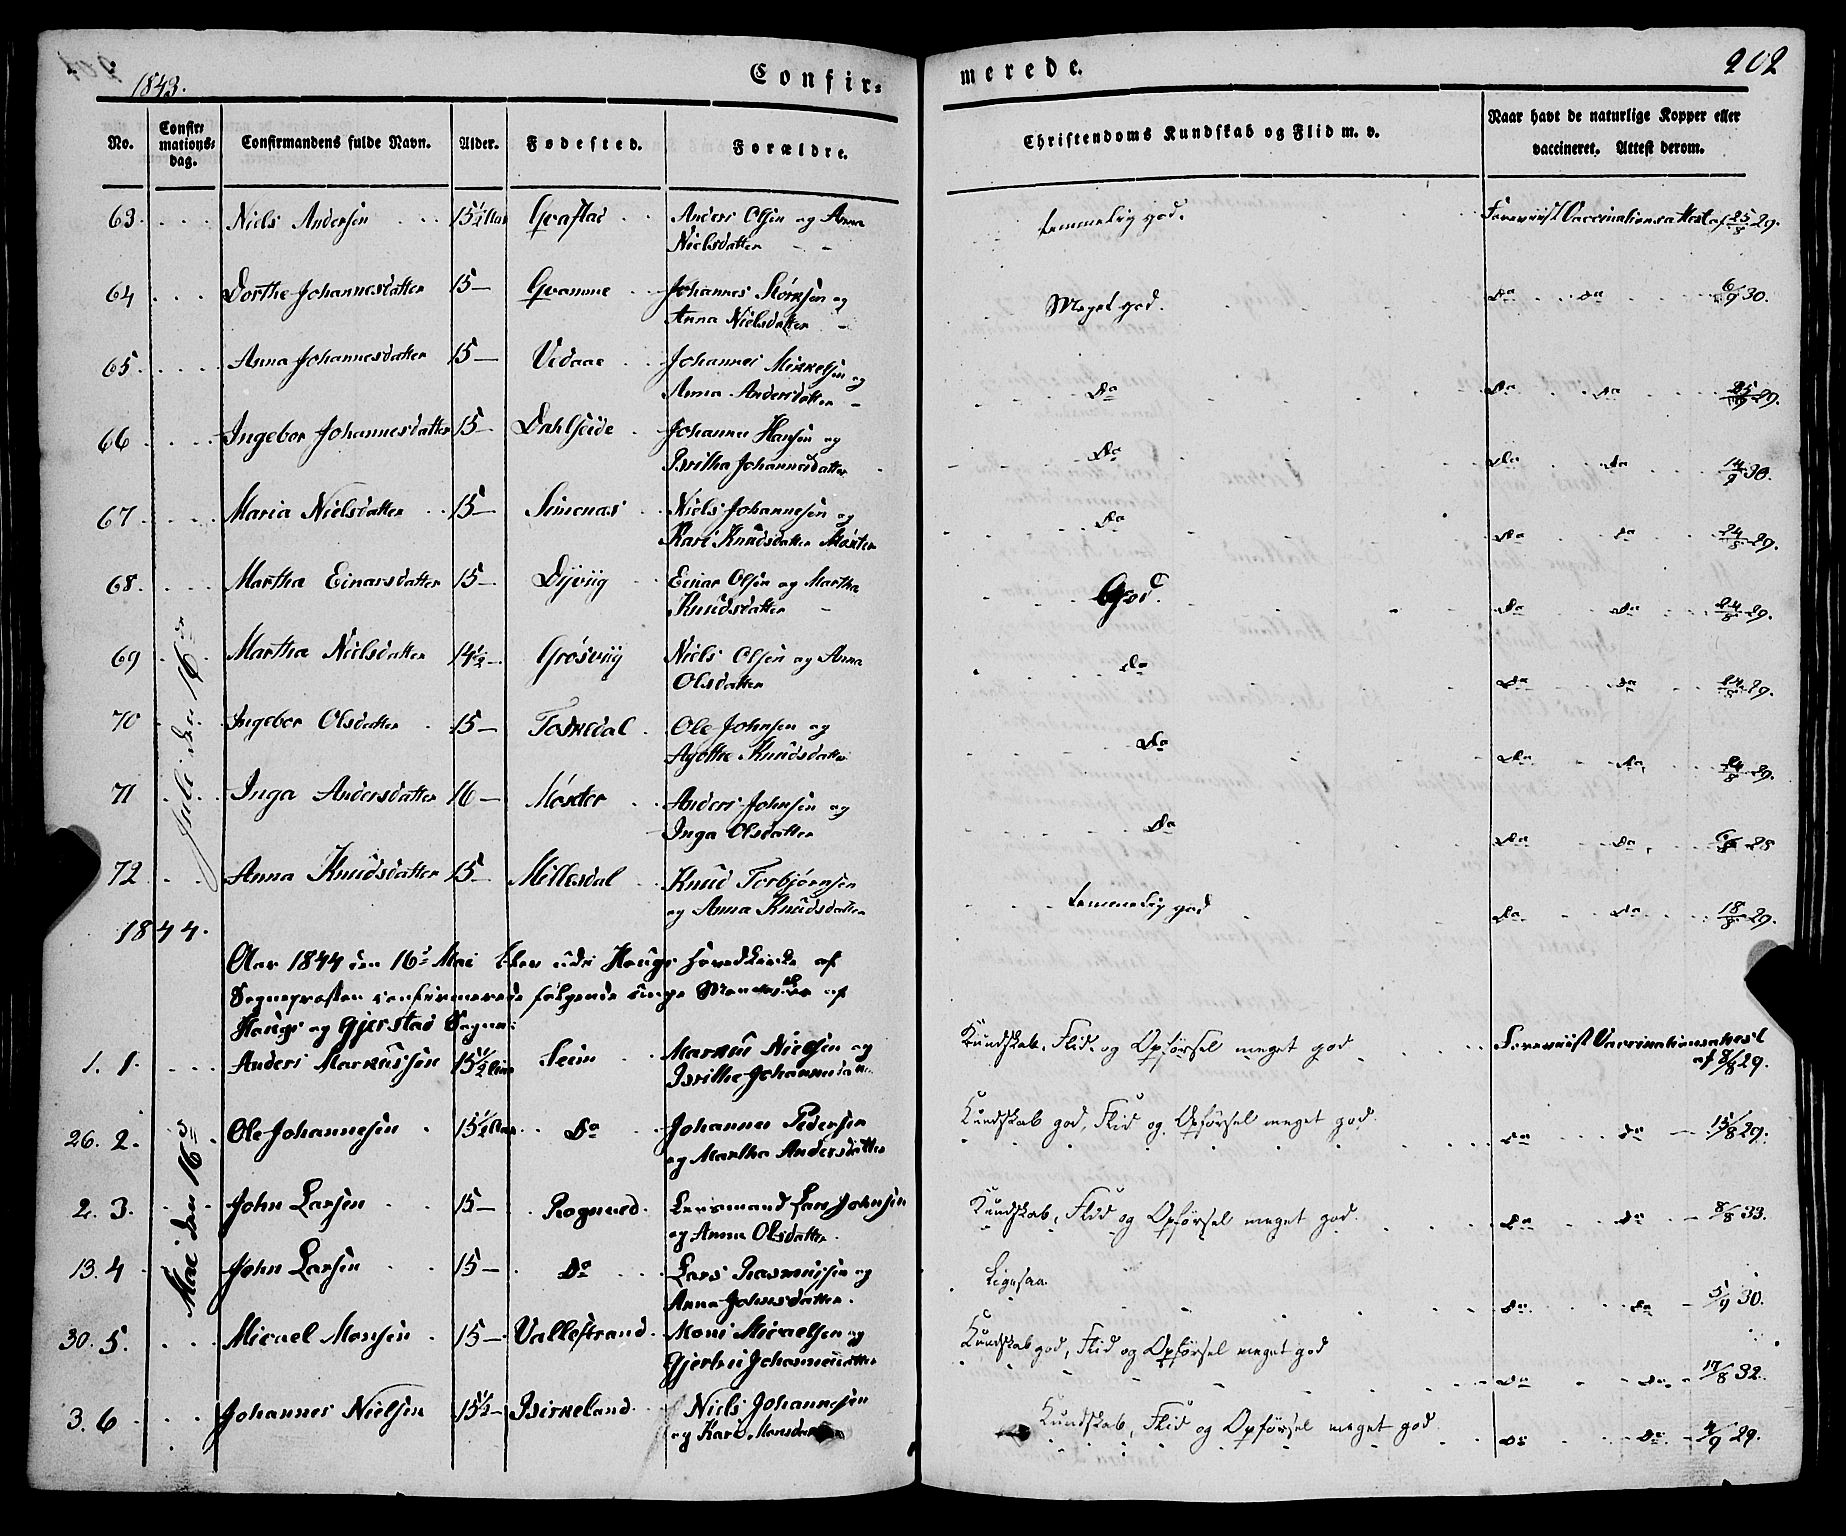 1843.
Confir=
merede.
202
No.
Confir=
mations=
dag.
Confirmandens fulde Navn.
Alder.
Fødested.
Forældre.
Christendoms Kundskab og Flid m. v.
Naar havt de naturlige Kopper eller
vaccineret. Attest derom.
63. Niels Andersen 15½ Aar Anders Olsen og Anna temmelig god. Foreviist Vaccinationsattest af 25/8 29.
Nielsdatter
64 Dorthe Johannesdatter 15 Gramme Johannes og Meget god. Do Do 6/9 30.
Anna Nielsdatter
65 Anna Johannesdatter 15 Vedaae Johannes Mikkelsen og Do Do Do 29.
Anna Andersdatter
66 Ingebor Johannesdatter 15 Dahlseide Johannes Hansen og Do Do Do 14/9 30.
Britha Johannesdatter
67 Maria Nielsdatter 15 Simenas Niels Johannesen og Do Do Do 24/8 29.
Kari Knudsdatter Moster
68. Martha Einarsdatter 15 Dyvig Einar Olsen og Martha God. Do Do 24/8 29.
Knudsdatter
69 Martha Nielsdatter 14½ Grøsviig Niels Olsen og Anna Do Do Do 24/8 29.
Olsdatter
70 Ingebor Olsdatter 15 Toskedal Ole Johnsen og Do Do Do 24/8 29.
Agathe Knudsdatter
71 Inga Andersdatter 16 Anders Johnsen og Do Do Do
Inga Olsdatter
72 Anna Knudsdatter 15 Millesdal Knud Torbjørnsen temmelig god Do Do 18/8 29.
og Anna Knudsdatter
Juli den 16de
1844.
Aar 1844 den 16de Mai blev udi Hougs Hovedkirke af
Sognepresten confirmerede følgende unge Mennesker af
Hougs og Gjerstad Sogne:
1. 1. Anders Markussen 15½ Seim Markus Nielsen og Kundskab, Flid og Opførsel meget god Foreviist Vaccinationsattest
Brithe Johannesdatter af 8/8 29.
26. 2. Ole Johannesen 15½ Aar Do Johannes Pedersen Kundskab god, Flid og Opførsel meget god Do Do 15/8 29.
og Martha Andersdatter
2. 3. John Larsen 15 Lensmand Lars Johnsen Kundskab, Flid og Opførsel meget god Do Do 8/8 33.
og Anna Olsdatter.
13. 4 John Larsen 15 Do Lars Rasmussen og Ligesaa Do Do 5/9 30.
Anna Johnsdatter.
30. 5. Micael Monsen 15 Vallestrand Mons Micaelsen og Kundskab god, Flid og Opførsel meget god Do Do 17/8 32.
Gjertru Johannesdatter
3. 6 Johannes Nielsen 15½ Birkeland. Niels Johannesen Kundskab, Flid og Opførsel meget god Do Do 4/9 29.
og Kari Monsdatter
Mai den 16de